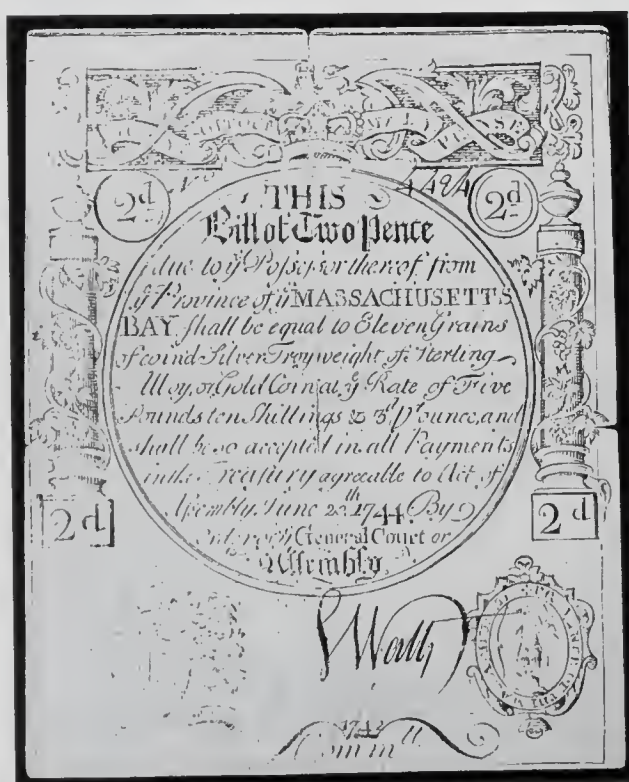 2d 2d
THIS
Bill of Two Pence
due to yͤ Possessor thereof from
yͤ Province of yͤ MASSACHUSETTS
BAY shall be equal to Eleven Grains
of coind Silver Troy weight of Sterling
Alloy, or Gold Coin at yͤ Rate of Five
Pounds ten Shillings & 3ᵈ pʳ ounce, and
shall be so accepted in all Payments
in the Treasury agreeable to Act of
Assembly June 20th 1744. By
Order of yͤ General Court or
Assembly
2d 2d
1742
Commtt